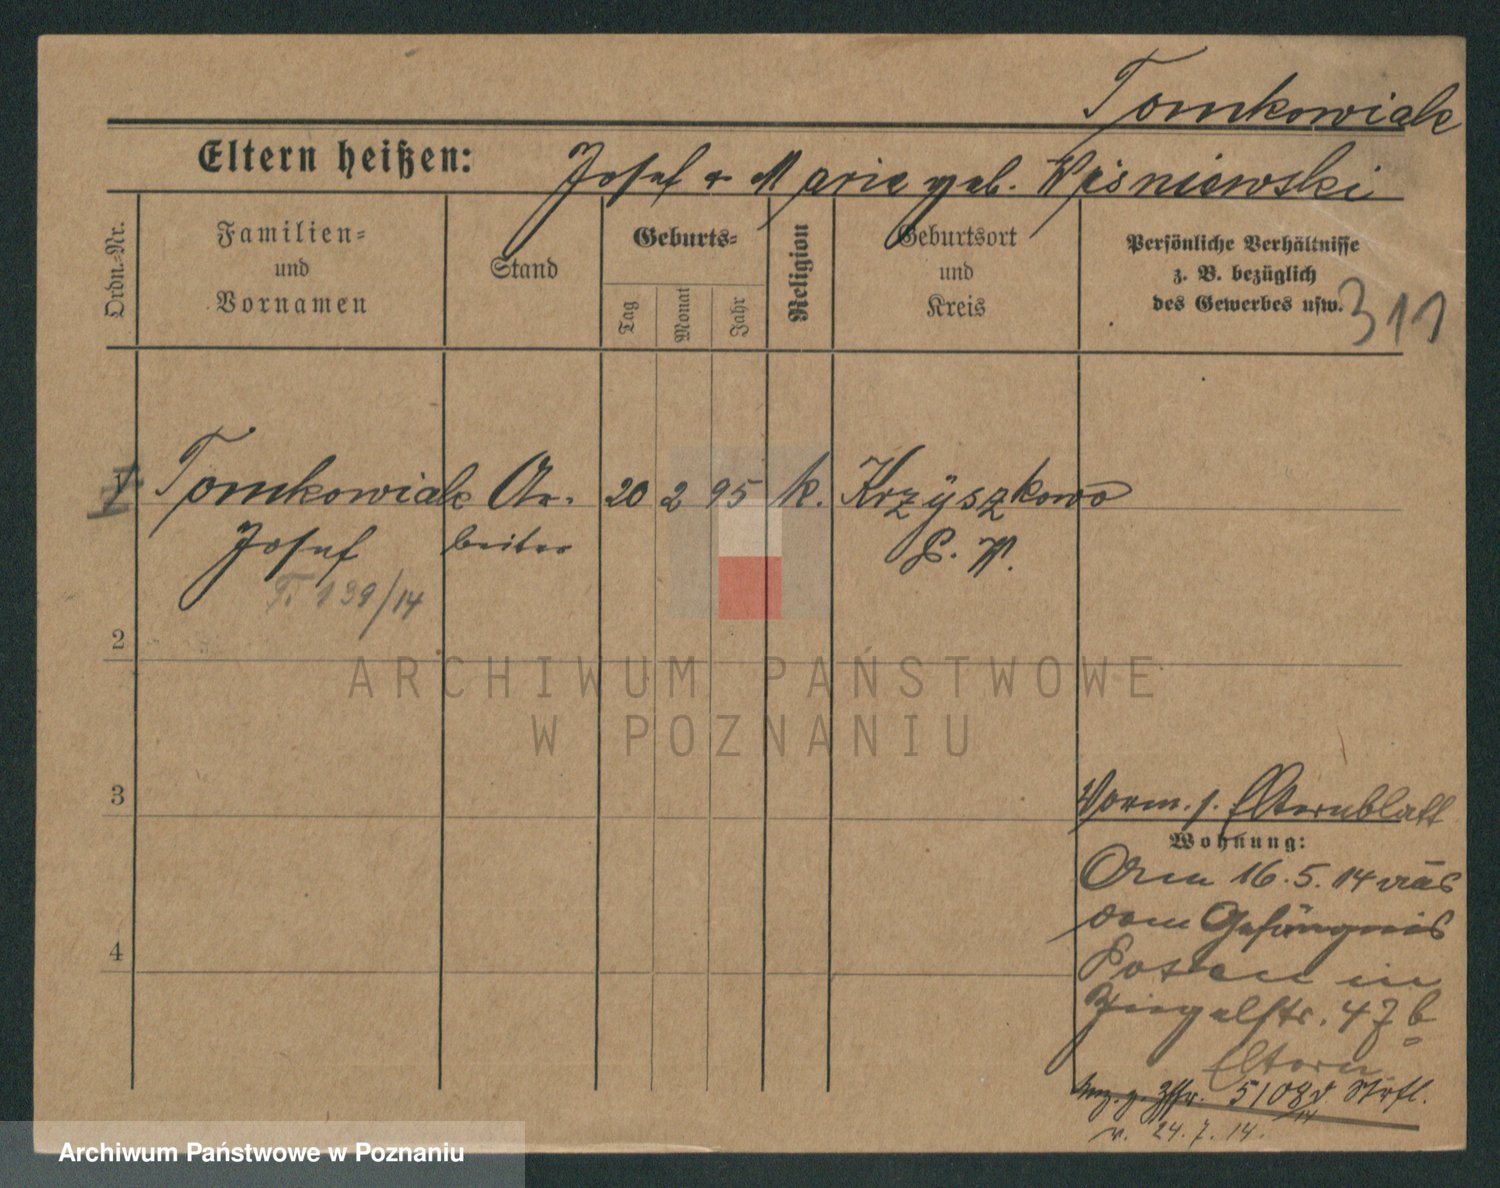 Tomkowiak
Eltern heißen: Josef u Marie geb. Wisniewski
Ordn.-Nr.
Familien-
und
Vornamen
Stand
Geburts-
Tag
Monat
Jahr
Religion
Geburtsort
und
Kreis
Persönliche Verhältnisse
z. B. bezüglich
des Gewerbes usw.
311
Tomkowiak Ar- 20 2 95 k. Krzyszkowo
Josef beiter P. W.
T. 139/14
2
3
4
Vorm. s. Elternblatt
Wohnung:
Am 16.5.14 aus
dem Gefängnis
Posen in
Ziegelstr. 47b
Eltern
5108
v. 24.7.14.
ARCHIWUM PAŃSTWOWE
W POZNANIU
Archiwum Państwowe w Poznaniu